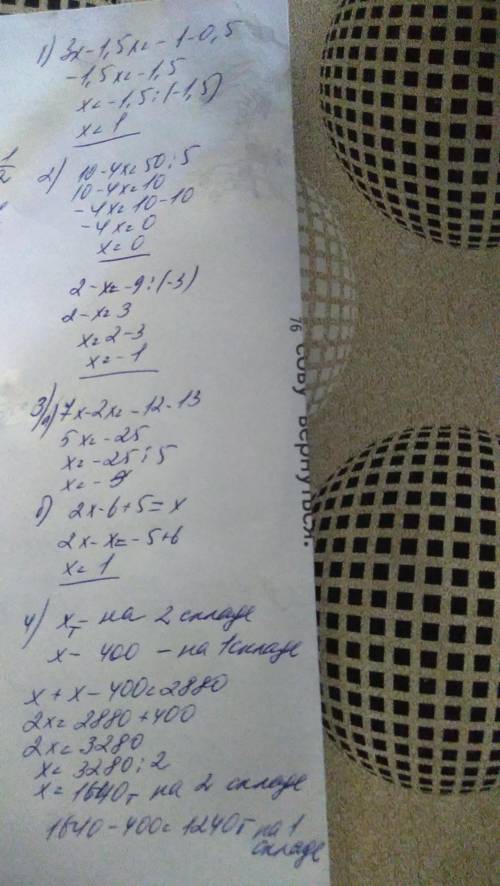 1) 3x-1,5x=-1-0,5
-1,5x=-1,5
x=-1,5:(-1,5)
x=1
1/2
2) 10-4x=50:5
10-4x=10
-4x=10-10
-4x=0
x=0
2-x=-9:(-3)
2-x=3
x=2-3
x=-1
3) а) 7x-2x=-12-13
5x=-25
x=-25:5
x=-5
б) 2x-6+5=x
2x-x=-5+6
x=1
4) x т - на 2 складе
x-400 - на 1 складе
x+x-400=2880
2x=2880+400
2x=3280
x=3280:2
x=1640т на 2 складе
1640-400=1240т на 1 складе
76 сову вернуться.